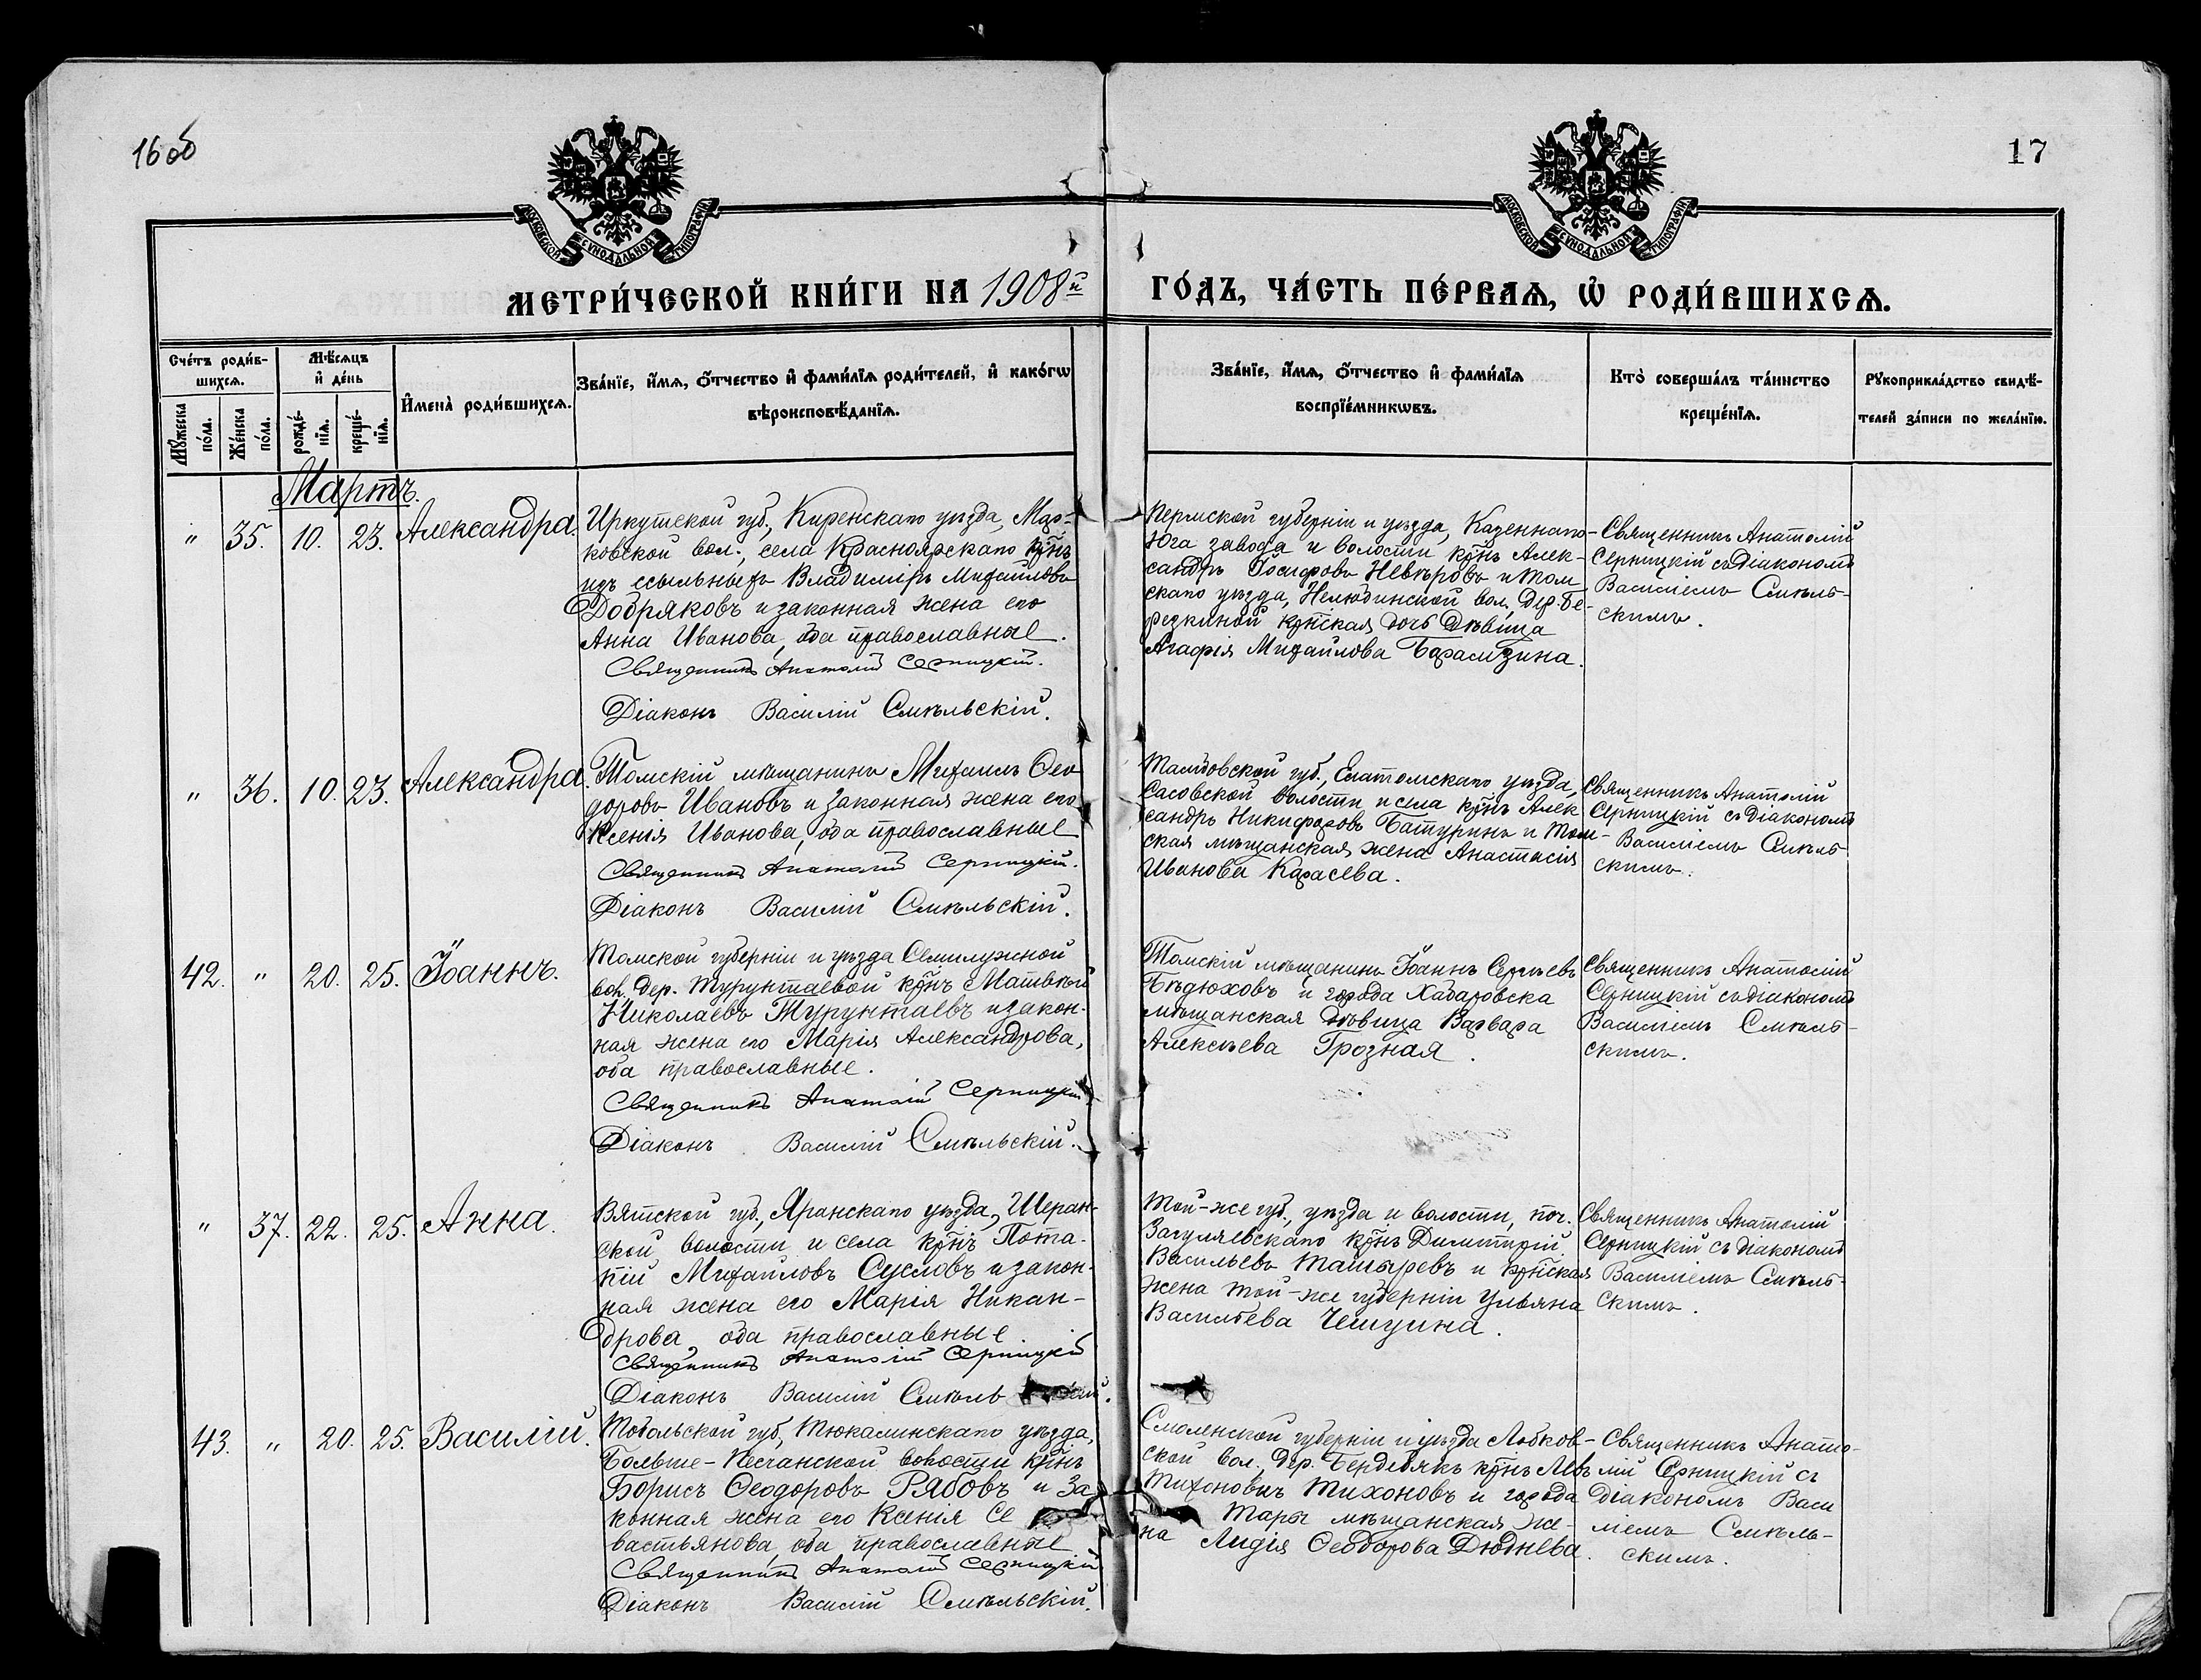 16 об
17
МОСКОВСКОЙ СѴНОДАЛЬНОЙ ТИПОГРАФІИ
МОСКОВСКОЙ СѴНОДАЛЬНОЙ ТИПОГРАФІИ
МЕТРИ́ЧЕСКОЙ КНИ́ГИ НА 1908й ГО́ДЪ, ЧА́СТЬ ПЕ́РВАѦ, Ѡ҆ РОДИ́ВШИХСѦ.
Сче́тъ роди́в-
шихсѧ.
Мꙋ́жеска по́ла.
Же́нска по́ла.
Мѣ́сѧцъ
и҆ де́нь
рожде́-
нїѧ.
креще́-
нїѧ.
И҆мена̀ роди́вшихсѧ.
Зва́нїе, и҆́мѧ, ѻ҆́тчество и҆ фами́лїѧ роди́телей, и҆ како́гѡ
вѣроисповѣ́данїѧ.
Зва́нїе, и҆́мѧ, ѻ҆́тчество и҆ фами́лїѧ
воспрїе́мникѡвъ.
Кто̀ соверша́лъ та́инство
креще́нїѧ.
Рꙋкоприкла́дство свидѣ́-
телей за́писи по жела́нїю.
Мартъ.
" 35. 10. 23. Александра.
Иркутской губ., Киренскаго уѣзда, Мар-
ковской вол., села Красноярскаго кр̃нъ
изъ ссыльныхъ Владиміръ Михайловъ
Добряковъ и законная жена его
Анна Иванова, оба православные.
Священникъ Анатолій Серницкій.
Діаконъ Василій Смѣльскій.
Пермской губерніи и уѣзда, Казеннаго-
Юга завода и волости кр̃нъ Алек-
сандръ Іосифовъ Невѣровъ и Том
скаго уѣзда, Нелюбинской вол., дер. Бе-
резкиной кр̃нская дочь дѣвица
Агафія Михайлова Барамзина.
Священникъ Анатолій
Серницкій съ діакономъ
Василіемъ Смѣль-
скимъ.
" 36. 10. 23. Александра.
Томскій мѣщанинъ Михаилъ Ѳео
доровъ Ивановъ и законная жена его
Ксенія Иванова, оба православные
Священникъ Анатолій Серницкій.
Діаконъ Василій Смѣльскій.
Тамбовской губ., Елатомскаго уѣзда,
Сасовской волости и села кр̃нъ Алек
сандръ Никифоровъ Батуринъ и Том-
ская мѣщанская жена Анастасія
Иванова Карасева.
Священникъ Анатолій
Серницкій съ діакономъ
Василіемъ Смѣль-
скимъ.
42. " 20. 25. Іоаннъ.
Томской губерніи и уѣзда Семилужной
вол. дер. Турунтаевой кр̃нъ Матвѣй
Николаевъ Турунтаевъ и закон-
ная жена его Марія Александрова,
оба православные.
Священникъ Анатолій Серницкій
Діаконъ Василій Смѣльскій.
Томскій мѣщанинъ Іоаннъ Сергѣевъ
Бѣдюховъ и города Хабаровска
мѣщанская дѣвица Варвара
Алексѣева Грозная.
Священникъ Анатолій
Серницкій съ діакономъ
Василіемъ Смѣль-
скимъ.
" 37. 22. 25. Анна.
Вятской губ., Яранскаго уѣзда, Шеран-
ской волости и села кр̃нъ Пота-
пій Михайловъ Сусловъ и закон-
ная жена его Марѳа Никан-
дрова, оба православные.
Священникъ Анатолій Серницкій
Діаконъ Василій Смѣль
Той-же губ., уѣзда и волости, поч.
Загуляевскаго кр̃нъ Димитрій
Васильевъ Ташыревъ и кр̃нская
жена той-же губерніи Ульяна
Васильева
Священникъ Анатолій
Серницкій съ діакономъ
Василіемъ Смѣль-
скимъ.
43. " 20. 25. Василій.
Тобольской губ, Тюкалинскаго уѣзда,
Больше-Песчанской волости кр̃нъ
Борисъ Ѳеодоровъ Рябовъ и за
конная жена его Ксенія Се
вастьянова, оба православные
Священникъ Анатолій Серницкій
Діаконъ Василій Смѣльскій.
Смоленской губерніи и уѣзда Лобков-
ской вол., дер. Бердебякъ кр̃нъ Левъ
Тихоновичъ Тихоновъ и города
Тары мѣщанская же-
на Лидія Ѳеодорова Дюднева.
Священникъ Анато-
лій Серницкій съ
діакономъ Васи
ліемъ Смѣль-
скимъ.